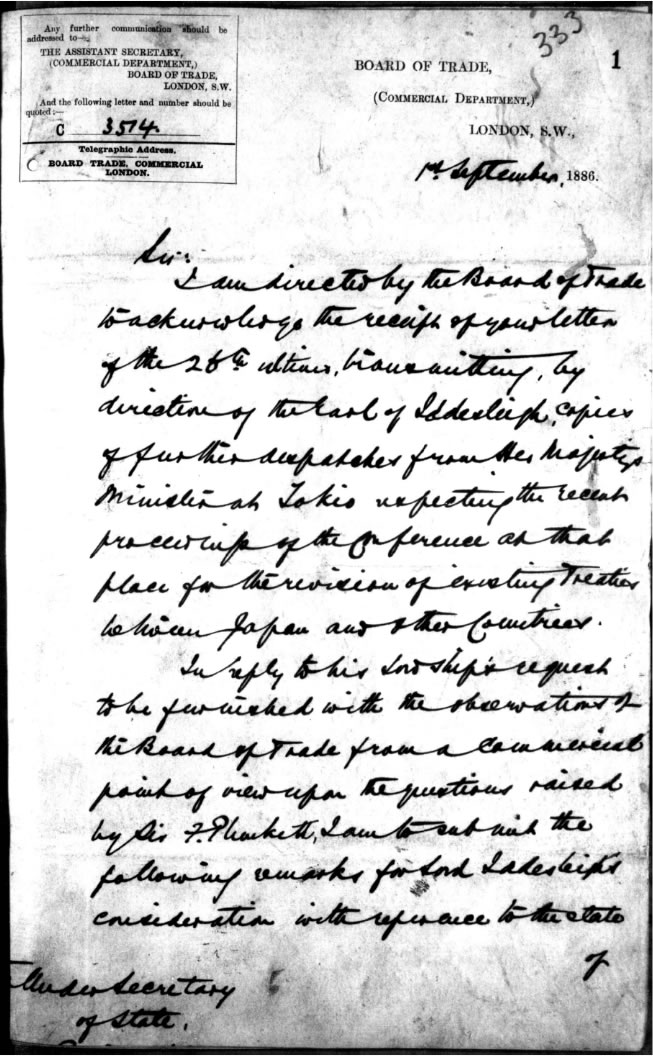 Any further communication should be
addressed to—
THE ASSISTANT SECRETARY,
(COMMERCIAL DEPARTMENT,)
BOARD OF TRADE,
LONDON, S.W.
And the following letter and number should be
quoted:—
C 3514
Telegraphic Address.
BOARD TRADE. COMMERCIAL
LONDON.
333
1
BOARD OF TRADE,
(COMMERCIAL DEPARTMENT,)
LONDON, S.W.,
1st September, 1886.
Sir:
I am directed by the Board of Trade
to acknowledge the receipt of your letter
of the 26th ultimo, transmitting, by
direction of the Earl of Iddesleigh, copies
of further despatches from Her Majesty's
Minister at Tokio respecting the recent
proceedings of the Conference at that
place for the revision of existing Treaties
between Japan and other Countries.
In reply to his Lordship's request
to be furnished with the observations of
the Board of Trade from a commercial
point of view upon the questions raised
by Sir F. Plunkett, I am to submit the
following remarks for Lord Iddesleigh's
consideration with reference to the state
of
Under Secretary
of State.